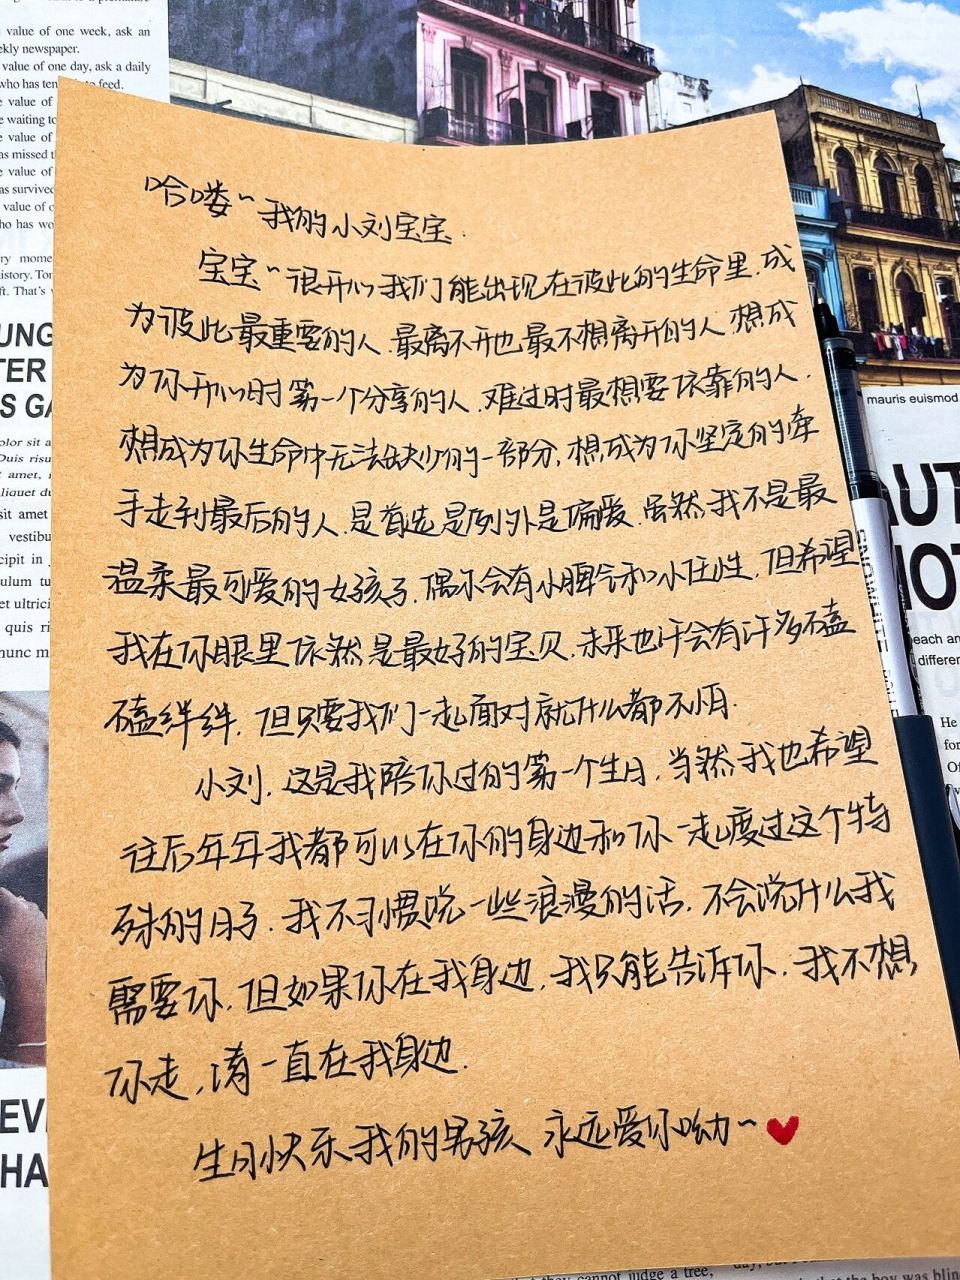 哈喽~我的小刘宝宝.
宝宝~很开心我们能出现在彼此的生命里.成
为彼此最重要的人.最离不开也最不想离开的人.想成
为你开心时第一个分享的人.难过时最想要依靠的人.
想成为你生命中无法缺少的一部分,想成为你坚定的牵
手走到最后的人.是首选是例外是偏爱.虽然我不是最
温柔最可爱的女孩子.偶尔会有小脾气和小任性,但希望
我在你眼里依然是最好的宝贝.未来也许会有许多磕
磕绊绊.但只要我们一起面对就什么都不怕.
小刘.这是我陪你过的第一个生日.当然我也希望
往后年年我都可以在你的身边和你一起度过这个特
殊的日子.我不习惯说一些浪漫的话.不会说什么我
需要你.但如果你在我身边.我只能告诉你.我不想
你走,请一直在我身边.
生日快乐我的男孩 永远爱你呦~❤
value of one week, ask an
value of one day, ask a daily
mauris euismod